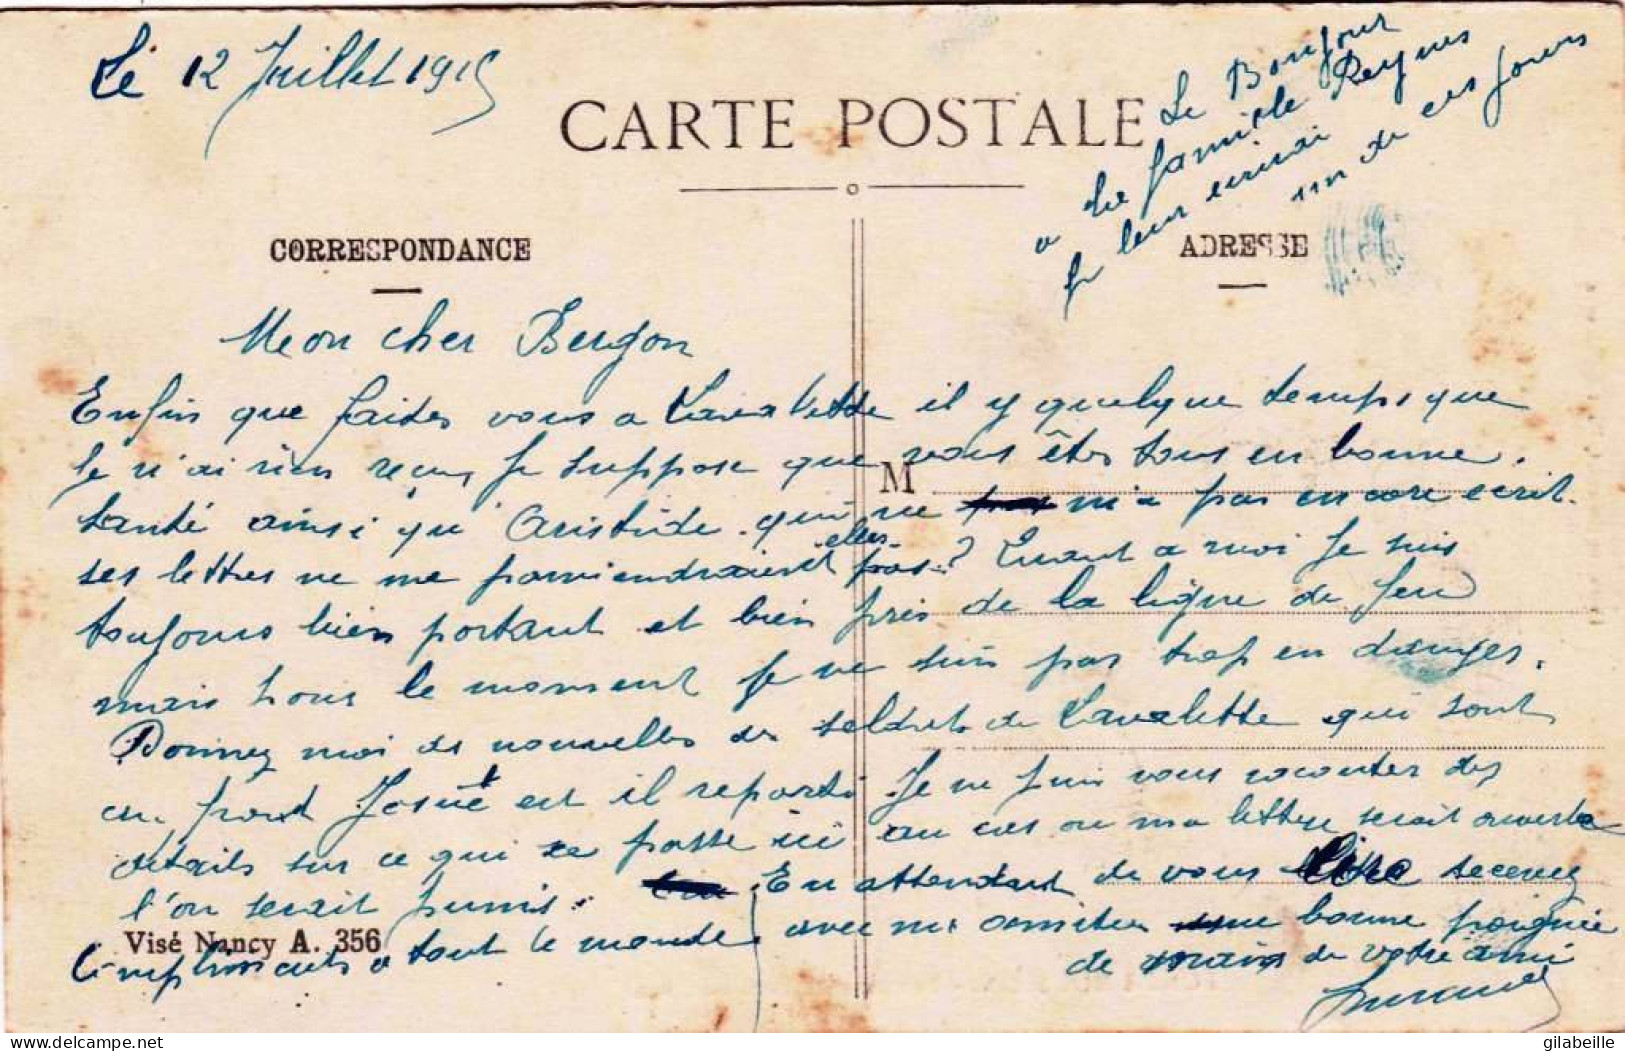 Le 12 Juillet 1915
Le Bonjour
a la famille Reynes
Je leur ecrirai
un de ces jours
CARTE POSTALE
CORRESPONDANCE
ADRESSE
Mon cher Bergon
Enfin que faites vous a Lavalette il y quelque temps que
Je n'ai rien reçu Je suppose que vous êtes tous en bonne
M
santé ainsi qu'Aristide qui ne m'a pas encore ecrit.
ses lettres ne me parviendraient elles pas? Quant a moi Je suis
toujours bien portant et bien près de la ligne de feu
mais pour le moment Je ne suis pas trop en danger.
Donnez moi de nouvelles des soldats de Lavalette qui sont
au front Josué est il reparti Je ne puis vous raconter des
details sur ce qui se passe ici au cas ou ma lettre serait ouverte
l'on serait puni. En attendant de vous lire recevez
Visé Nancy A. 356
Compliments a tout le monde avec mes amities une bonne poignée
de main de votre ami
delcampe.net
gilabeille